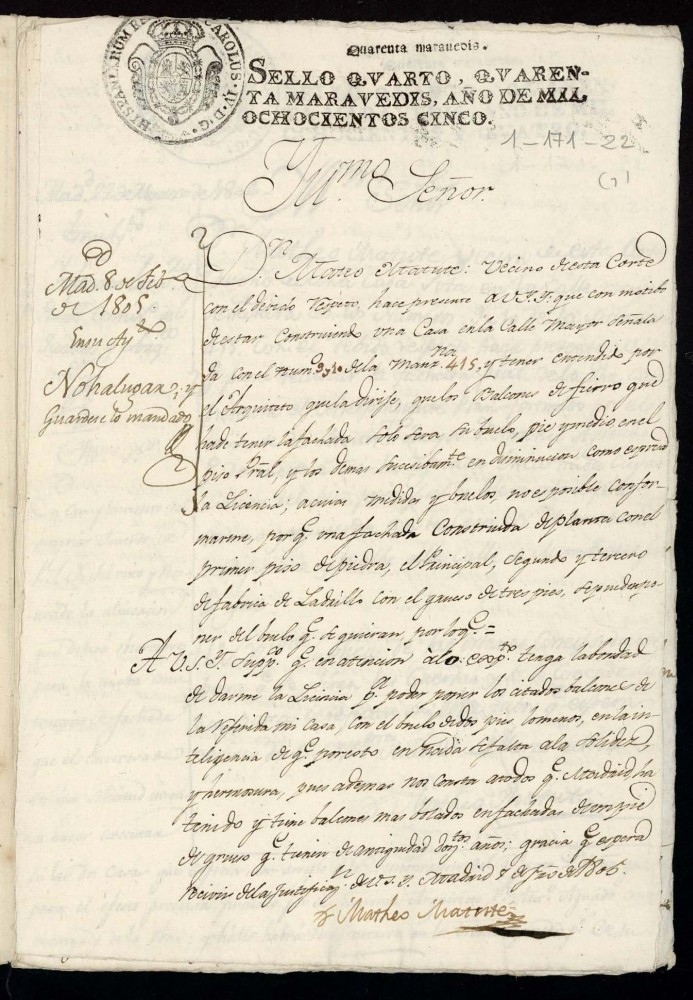 HISPANIARUM REX CAROLUS IV D. G.
Quarenta marauedis.
SELLO QVARTO, QVAREN-
TA MARAVEDIS, AÑO DE MIL
OCHOCIENTOS CINCO.
1-171-22
(1)
Yll.mo Señor.
Mad. 8 de Feb.o
de 1805.
En su Ay.to
No ha lugar; y
Guardese lo mandado
D.n Mateo Matute: Vecino de esta Corte
con el devido respeto, hace presente a V.S.Y. que con motibo
de estar Construiendo una Casa en la Calle Mayor Señala
da con el num.o 9 y 10 de la Manz.na 415, y tener entendido por
el Arquiteto que la dirije, que los Balcones de fierro que
ha de tener la fachada solo sera su buelo, pie y medio, en el
piso Pral, y los demas sucesibam.te en disminucion como espresa
la Licencia; a cuias medidas y buelos, no es posible confor-
marme, por q.e una fachada Construida de planta con el
primer piso de piedra, el Principal, segundo y tercero
de fabrica de Ladrillo con el grueso de tres pies, se puede po-
ner del buelo q.e se quieran, por lo q.e =
A V.S.Y. Supp.co q.e en atencion à lo exp.to tenga la bondad
de darme la Licencia p.a poder poner los citados balcones de
la Referida mi casa, con el buelo de dos pies lo menos, en la in-
teligencia de q.e por esto en nada se falta a la solidez,
y hermosura, pues ademas nos consta a todos q.e Madrid, ha
tenido y tiene balcones mas bolados en fachadas de un pie
de grueso q.e tienen de antiguedad años; gracia q.e espera
recivir de la Justificaz.n de V.S.Y. Madrid
D.n Matheo Matute